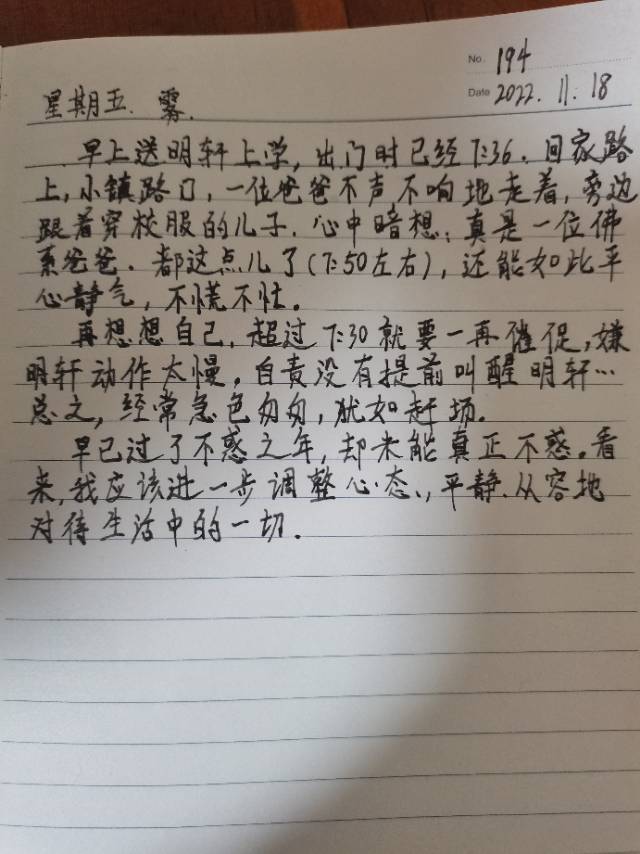 No. 194
星期五. 雾.
Date 2022.11.18
早上送明轩上学，出门时已经7:36. 回家路
上，小镇路口，一位爸爸不声不响地走着，旁边
跟着穿校服的儿子. 心中暗想：真是一位佛
系爸爸. 都这点儿了(7:50左右)，还能如此平
心静气，不慌不忙。
再想想自己，超过7:30就要一再催促，嫌
明轩动作太慢，自责没有提前叫醒明轩…
总之，经常急色匆匆，犹如赶场.
早已过了不惑之年，却未能真正不惑. 看
来，我应该进一步调整心态、平静、从容地
对待生活中的一切.